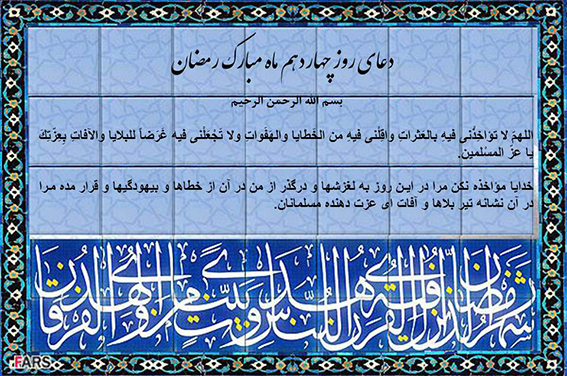 دعای روز چهاردهم ماه مبارک رمضان
بسم الله الرحمن الرحیم
اللهمّ لا تؤاخِذْنی فیهِ بالعَثراتِ واقِلْنی فیهِ من الخَطایا والهَفَواتِ ولا تَجْعَلْنی فیه غَرَضاً للبلایا والآفاتِ بِعِزّتِكَ
یا عزّ المسْلمین.
خدایا مؤاخذه نکن مرا در ایـن روز به لغزشها و درگذر از من در آن از خطاها و بیهودگیها و قرار مده مـرا
در آن نشانه تیر بلاها و آفات ای عزت دهنده مسلمانان.
شهر رمضان الذی انزل فیه القرآن هدی للناس و بینت من الهدی و الفرقان
FARS